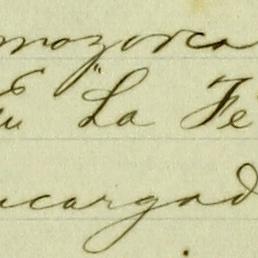 mazorca
En "La Fé
ncargad